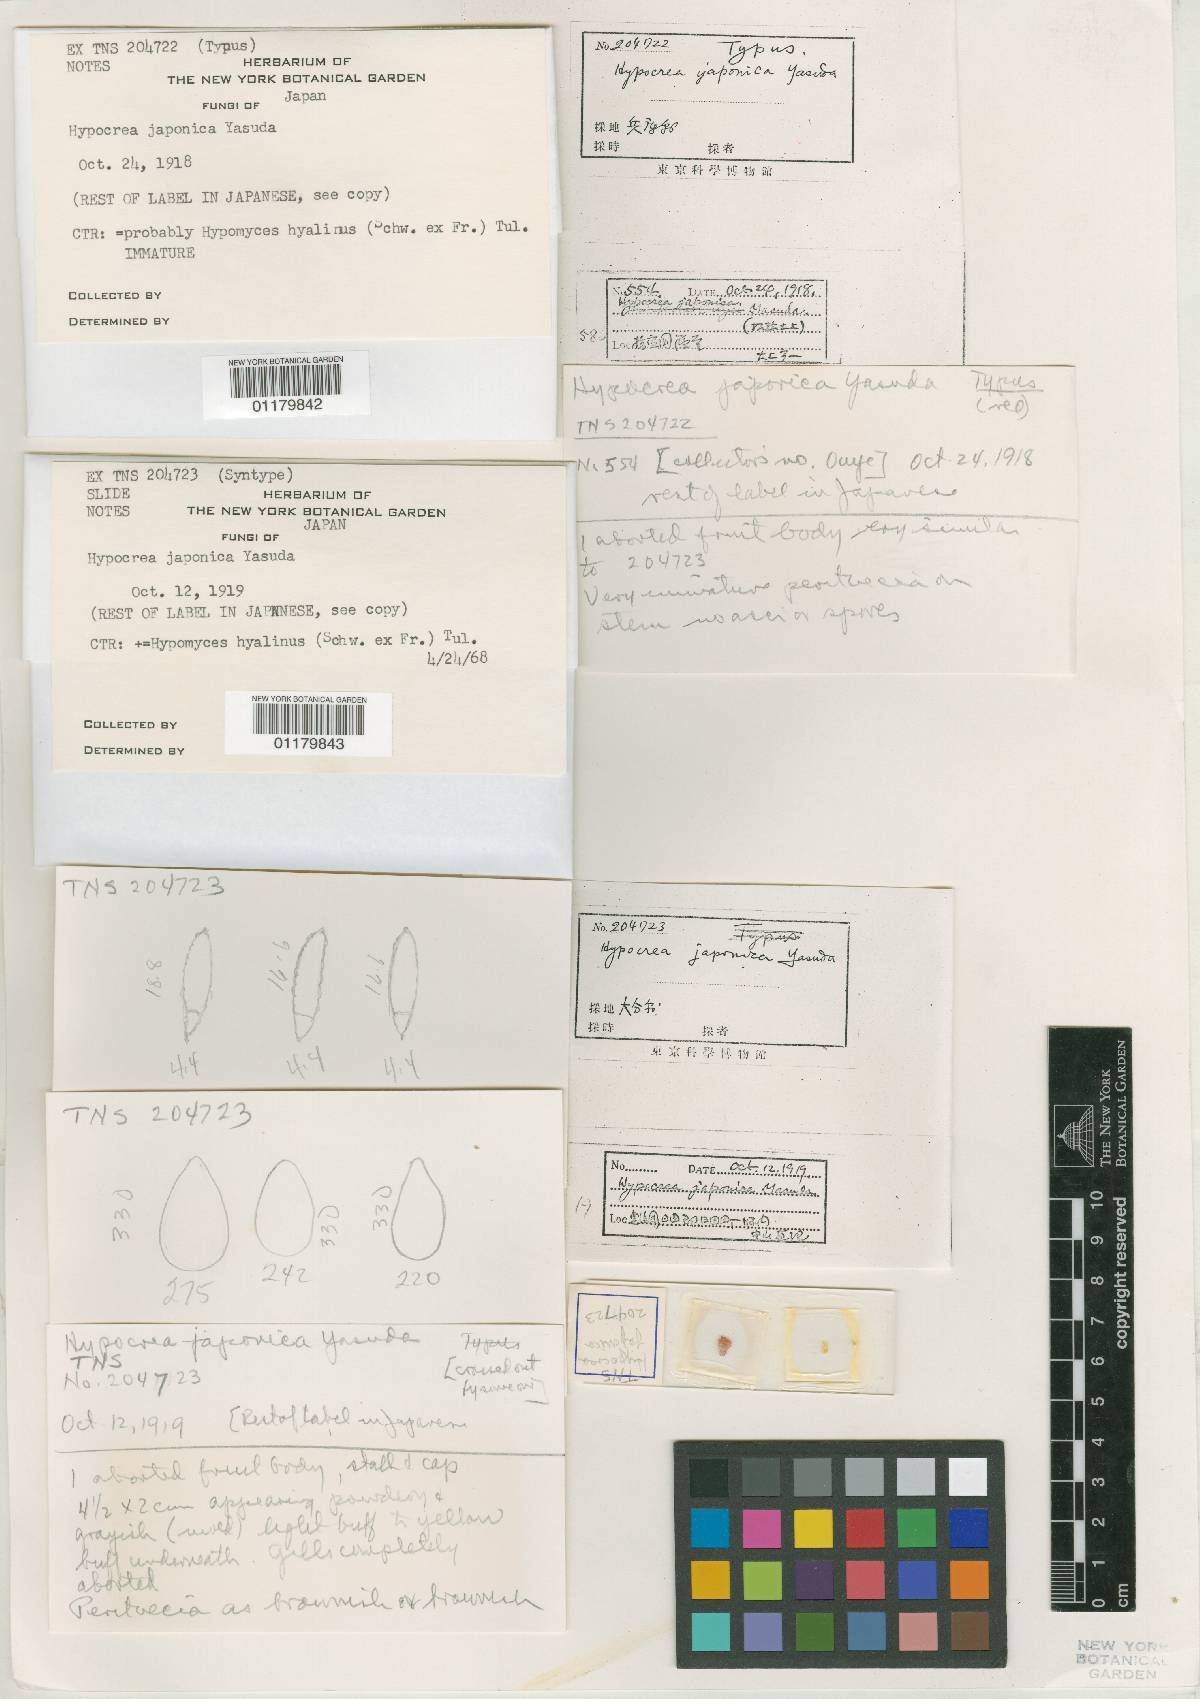 EX TNS 204722 (Typus)
NOTES
HERBARIUM OF
THE NEW YORK BOTANICAL GARDEN
FUNGI OF Japan
Hypocrea japonica Yasuda
Oct. 24, 1918
(REST OF LABEL IN JAPANESE, see copy)
CTR: =probably Hypomyces hyalinus (Schw. ex Fr.) Tul.
IMMATURE
COLLECTED BY
DETERMINED BY
NEW YORK BOTANICAL GARDEN
01179842
No. 204722 Typus.
Hypocrea japonica Yasuda
採地
採時 採者
東京科學博物館
No. 554 DATE Oct. 24, 1918.
Hypocrea japonica
Loc.
58
Hypocrea japonica Yasuda Typus
(red)
TNS 204722
No 554 [collector's no. Ouye] Oct. 24, 1918
rest of label in Japanese
1 aborted fruit body very similar
to 204723
Very immature perithecia on
stem no asci or spores
EX TNS 204723 (Syntype)
SLIDE
NOTES
HERBARIUM OF
THE NEW YORK BOTANICAL GARDEN
JAPAN
FUNGI OF
Hypocrea japonica Yasuda
Oct. 12, 1919
(REST OF LABEL IN JAPANESE, see copy)
CTR: +=Hypomyces hyalinus (Schw. ex Fr.) Tul.
4/24/68
COLLECTED BY
DETERMINED BY
NEW YORK BOTANICAL GARDEN
01179843
TNS 204723
18.8
4.4
4.4
4.4
No. 204723 Typus
Hypocrea japonica Yasuda
採地
採時 採者
東京科學博物館
No. DATE Oct. 12. 1919.
Hypocrea japonica
Loc.
TNS 204723
330
275
242
330
330
220
TNS
Hypocrea
japonica
204723
Hypocrea japonica Yasuda Typus
TNS
No. 204723
[crossed out
Oct 12, 1919 [Rest of Label in Japanese
1 aborted fruit body, stalk & cap
4½ x 2 cm appearing powdery &
grayish light buff to yellow
buff underneath. Gills completely
aborted
Perithecia as brownish or brownish
THE NEW YORK
BOTANICAL GARDEN
copyright reserved
10
9
8
7
6
5
4
3
2
1
0
cm
NEW YORK
BOTANICAL
GARDEN